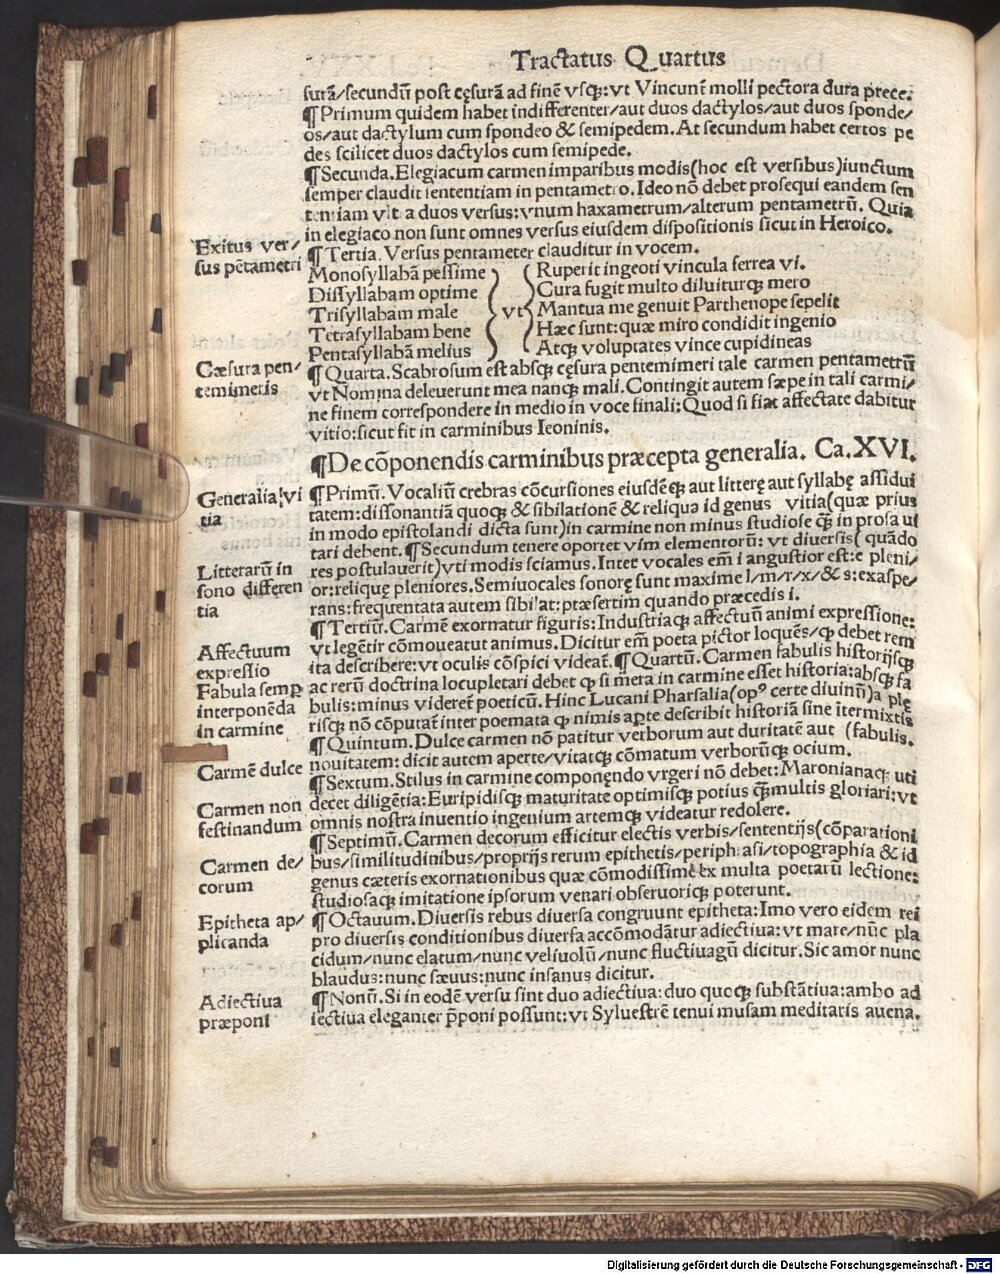 Tractatus Quartus
surā/secundū post cęsurā ad finē vsq̃: vt Vincunẽ molli pectora dura prece.
¶Primum quidem habet indifferenter/aut duos dactylos/aut duos sponde/
os/aut dactylum cum spondeo & semipedem. At secundum habet certos pe
des scilicet duos dactylos cum semipede.
¶Secunda. Elegiacum carmen imparibus modis(hoc est versibus)iunctum
semper claudit sententiam in pentametro. Ideo nō debet prosequi eandem sen
tentiam vltra duos versus: vnum haxametrum/alterum pentametrū. Quia
in elegiaco non sunt omnes versus eiusdem dispositionis sicut in Heroico.
Exitus ver/
sus pētametri
¶Tertia. Versus pentameter clauditur in vocem.
Monosyllabā pessime
Dissyllabam optime
Trisyllabam male
Tetrasyllabam bene
Pentasyllabā melius
vt
Ruperit ingeoti vincula ferrea vi.
Cura fugit multo diluiturq̃ mero
Mantua me genuit Parthenope sepelit
Hæc sunt: quæ miro condidit ingenio
Atq̃ voluptates vince cupidineas
Cæsura pen/
temimeris
¶Quarta. Scabrosum est absq̃ cęsura pentemimeri tale carmen pentametrū
vt Nomina deleuerunt mea nanq̃ mali. Contingit autem sæpe in tali carmi/
ne finem correspondere in medio in voce finali: Quod si fiat affectate dabitur
vitio: sicut fit in carminibus leoninis.
¶De cōponendis carminibus præcepta generalia. Ca. XVI.
Generalia vi
tia
¶Primū. Vocaliū crebras cōcursiones eiusdēq̃ aut litterę aut syllabę assidui
tatem: dissonantiā quoq̃ & sibilationē & reliqua id genus vitia(quæ prius
in modo epistolandi dicta sunt)in carmine non minus studiose q̃ in prosa ui
tari debent. ¶Secundum tenere oportet vim elementorū: vt diuersis(quādo
res postulauerit)vti modis sciamus. Inter vocales em̄ i angustior est: e pleni/
or: reliquę pleniores. Semiuocales sonorę sunt maxime l/m/r/x/& s: exaspe/
rans: frequentata autem sibilat: præsertim quando præcedis i.
Litterarū in
sono differen
tia
¶Tertiū. Carmē exornatur figuris: Industriaq̃ affectuū animi expressione:
vt legētir cōmoueatur animus. Dicitur em̄ poeta pictor loquēs/qp debet rem
ita describere: vt oculis cōspici videat̄. ¶Quartū. Carmen fabulis historijsq̃
ac rerū doctrina locupletari debet qp si mera in carmine esset historia: absq̃ fa
bulis: minus videret̄ poeticū. Hinc Lucani Pharsalia(op⁹ certe diuinū)a ple
risq̃ nō cōputat̄ inter poemata qp nimis apte describit historiā sine ītermixtis
Affectuum
expressio
Fabula semp
interponēda
in carmine
(fabulis.
¶Quintum. Dulce carmen nō patitur verborum aut duritatē aut
nouitatem: dicit autem aperte/vitatq̃ cōmatum verborūq̃ ocium.
Carmē dulce
¶Sextum. Stilus in carmine componendo vrgeri nō debet: Maronianaq̃ uti
decet diligētia: Euripidisq̃ maturitate optimisq̃ potius q̃ multis gloriari: vt
omnis nostra inuentio ingenium artemq̃ videatur redolere.
Carmen non
festinandum
¶Septimū. Carmen decorum efficitur electis verbis/sententijs(cōparationi
bus/similitudinibus/proprijs rerum epithetis/periphrasi/topographia & id
genus cæteris exornationibus quæ cōmodissime ex multa poetarū lectione:
studiosaq̃ imitatione ipsorum venari obseruoriq̃ poterunt.
Carmen de/
corum
Epitheta ap/
plicanda
¶Octauum. Diuersis rebus diuersa congruunt epitheta: Imo vero eidem rei
pro diuersis conditionibus diuersa accōmodātur adiectiua: vt mare/nūc pla
cidum/nunc elatum/nunc veliuolū/nunc fluctiuagū dicitur. Sic amor nunc
blaudus: nunc sæuus: nunc insanus dicitur.
Adiectiua
præponi
¶Nonū. Si in eodē versu sint duo adiectiua: duo quoq̃ substātiua: ambo ad
iectiua eleganter p̄poni possunt: vt Syluestrē tenui musam meditaris auena.
Digitalisierung gefördert durch die Deutsche Forschungsgemeinschaft - DFG